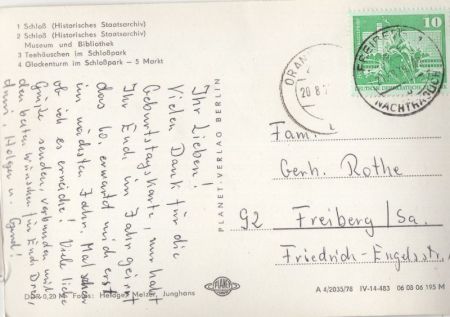 1 Schloß (Historisches Staatsarchiv)
2 Schloß (Historisches Staatsarchiv)
Museum und Bibliothek
3 Teehäuschen im Schloßpark
4 Glockenturm im Schloßpark – 5 Markt
Ihr Lieben!
Vielen Dank für die
Geburtstagskarte, nur habt
Ihr Euch im Jahr geirrt
das 60. erwartet mich erst
im nächsten Jahr. Mal sehen
ob ich es erreiche! Viele liebe
Grüße senden, verbunden mit
den besten Wünschen für Euch Drei,
Holger u.
DDR 0,20 M Fotos: Meizer, Junghans
PLANET-VERLAG BERLIN
PLANET
ORAN
20.8.
10
FREIBERG 1
NACHTRÄGLICH
Fam.
Gerh. Rothe
92 Freiberg/Sa.
Friedrich-Engelsstr.
A 4/2035/78 IV-14-483 06 08 06 195 M